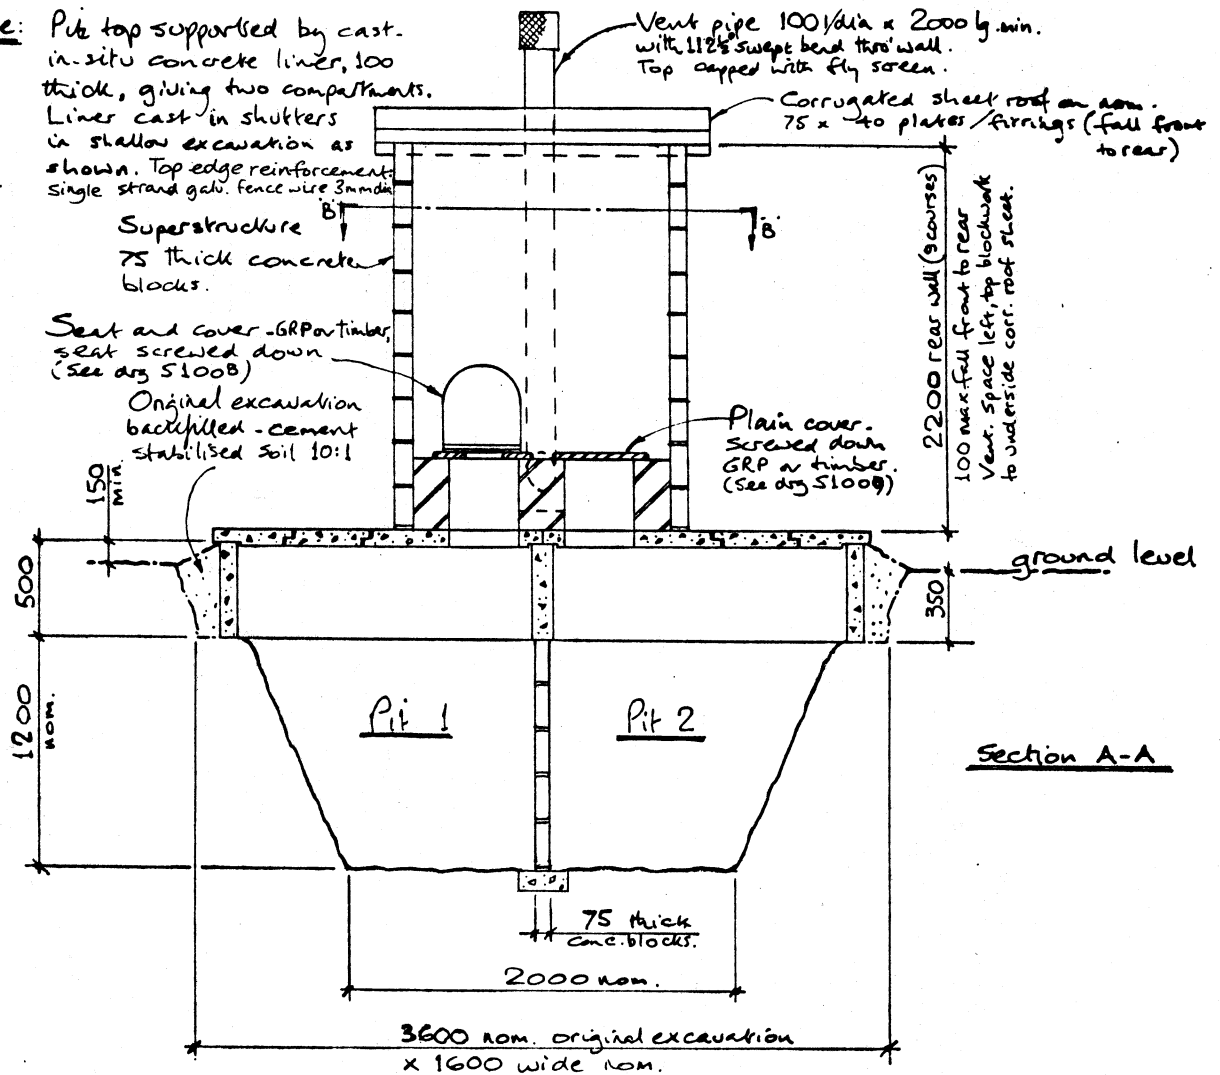 e: Pit top supported by cast-
in-situ concrete liner, 100
thick, giving two compartments.
Liner cast in shutters
in shallow excavation as
shown. Top edge reinforcement:
single strand galv. fence wire 3mm dia
Vent pipe 100 I/dia x 2000 lg. min.
with 112½° swept bend thro' wall.
Top capped with fly screen.
Corrugated sheet roof on nom.
75 x 40 plates/firrings (fall front
to rear)
'B'
'B'
Superstructure
75 thick concrete
blocks.
Seat and cover - GRP or timber,
seat screwed down
(See drg S100B)
Original excavation
backfilled - cement
stabilised soil 10:1
Plain cover.
Screwed down
GRP or timber.
(See drg S100B)
2200 rear wall (9 courses)
100 max fall front to rear
Vent. space left, top blockwork
to underside corr. roof sheet.
150
min
500
1200
nom.
ground level
350
Pit 1
Pit 2
Section A-A
75 thick
conc. blocks.
2000 nom.
3600 nom. original excavation
x 1600 wide nom.